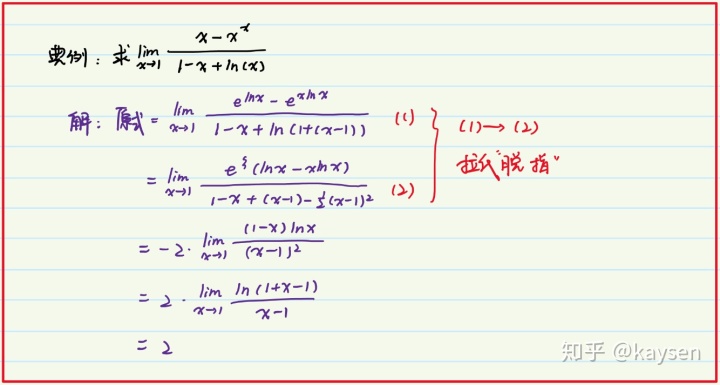 典例：求 lim x→1 (x - x^x)/(1-x+ln(x))
解：原式 = lim x→1 (e^{lnx} - e^{xlnx})/(1-x+ln(1+(x-1))) (1)
= lim x→1 e^ξ(lnx - xlnx)/(1-x+(x-1)-½(x-1)²) (2)
(1)→(2)
拉氏"脱指"
= -2· lim x→1 (1-x)lnx/(x-1)²
= 2· lim x→1 ln(1+x-1)/(x-1)
= 2
知乎 @kaysen